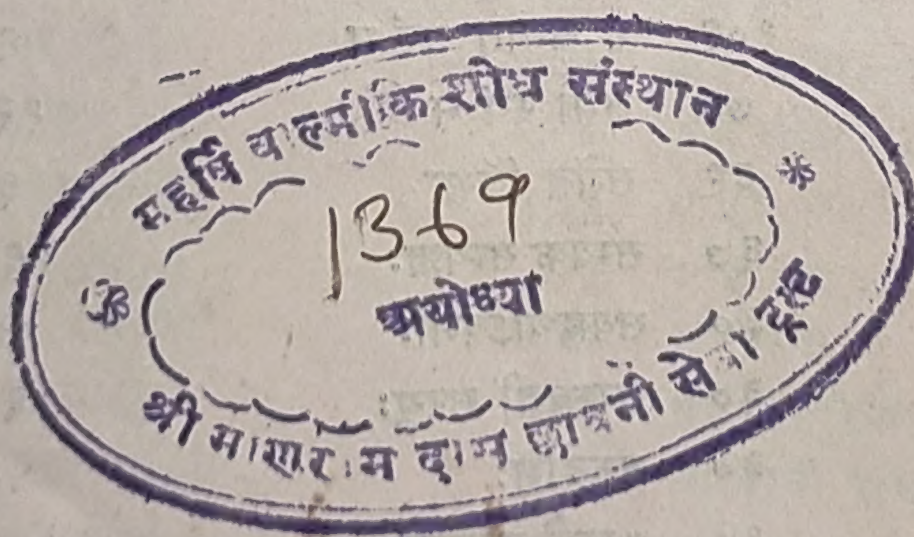 महर्षि वाल्मीकि शोध संस्थान
1369
अयोध्या
श्री मणिराम दास छावनी सेवा ट्रस्ट